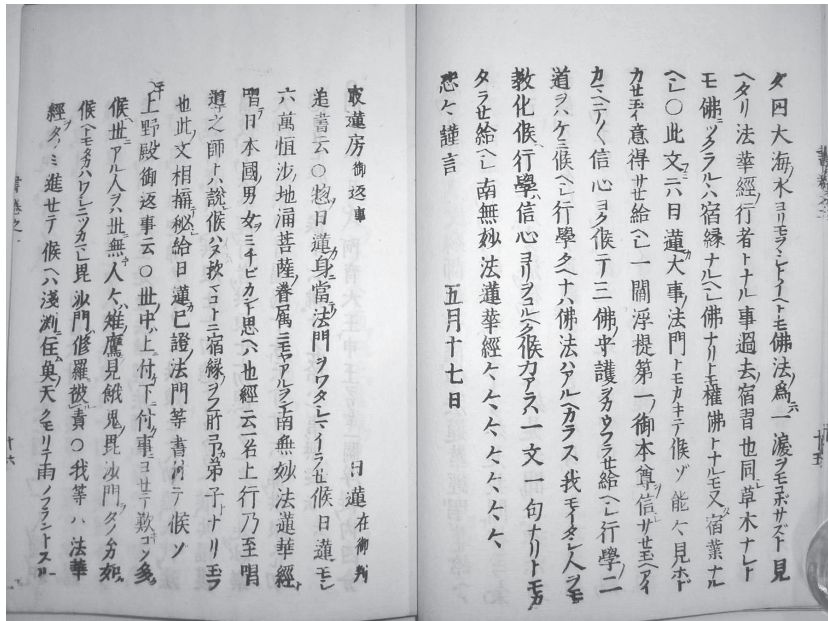 タ四大海ノ水ヨリモヲヽシトイヘトモ佛法ノ爲ニハ一渧ヲモヲボサズト見
ヘタリ法華經ノ行者トナル事過去ノ宿習也同シ草木ナレト
モ佛ニツクラルヽハ宿縁ナルヘシ佛ナリトモ權佛トナルモ又宿業ナル
ヘシ〇此文ニハ日蓮カ大事ノ法門トモカキテ候ゾ能々見ホド
カセ玉ヘ意得サセ給ヘシ一閻浮提第一ノ御本尊ヲ信サセ玉ヘアイ
カマヘテ〳〵信心ヨク候テ三佛ノ守護ヲカウフラセ給ヘシ行學ノ二
道ヲハケミ候ヘシ行學タヘナハ佛法ハアルヘカラス我モイタシ人ヲモ
教化候ヘ行學ハ信心ヨリヲコルヘク候力アラハ一文一句ナリトモカ
タラセ給ヘシ南無妙法蓮華經々々々々々々
恐々謹言 五月十七日
最蓮房御返事 日蓮在御判
追書云〇惣シテ日蓮カ身ニ當ノ法門ヲワタシマイラセ候日蓮モシ
六萬恒沙ノ地涌菩薩ノ眷属ニモヤアルラン南無妙法蓮華經ト
唱テ日本國ノ男女ヲミチビカント思ヘハ也經云一名上行乃至唱
導之師トハ說候ハヌ歟マコトニ宿縁ヲフ所予カ弟子トナリ玉フ
也此文相構テ秘給ヘ日蓮カ己證ノ法門等書付テ候ソ
上野殿御返事云〇世ノ中上ニ付下ニ付事ニヨセテ歎コソ多ク
候ヘ世ニアル人ヲハ世ニ無キ人々雉ノ鷹ヲ見餓鬼ノ毘沙門ヲタノムカ如ク
候ヘトモタカハワレニツカマレ毘沙門ハ修羅ニ彼責ラル〇我等ハ法華
經ヲタノミ進セテ候ヘハ淺淵ニ住ム魚ノ天クモリテ雨ノフラントスル